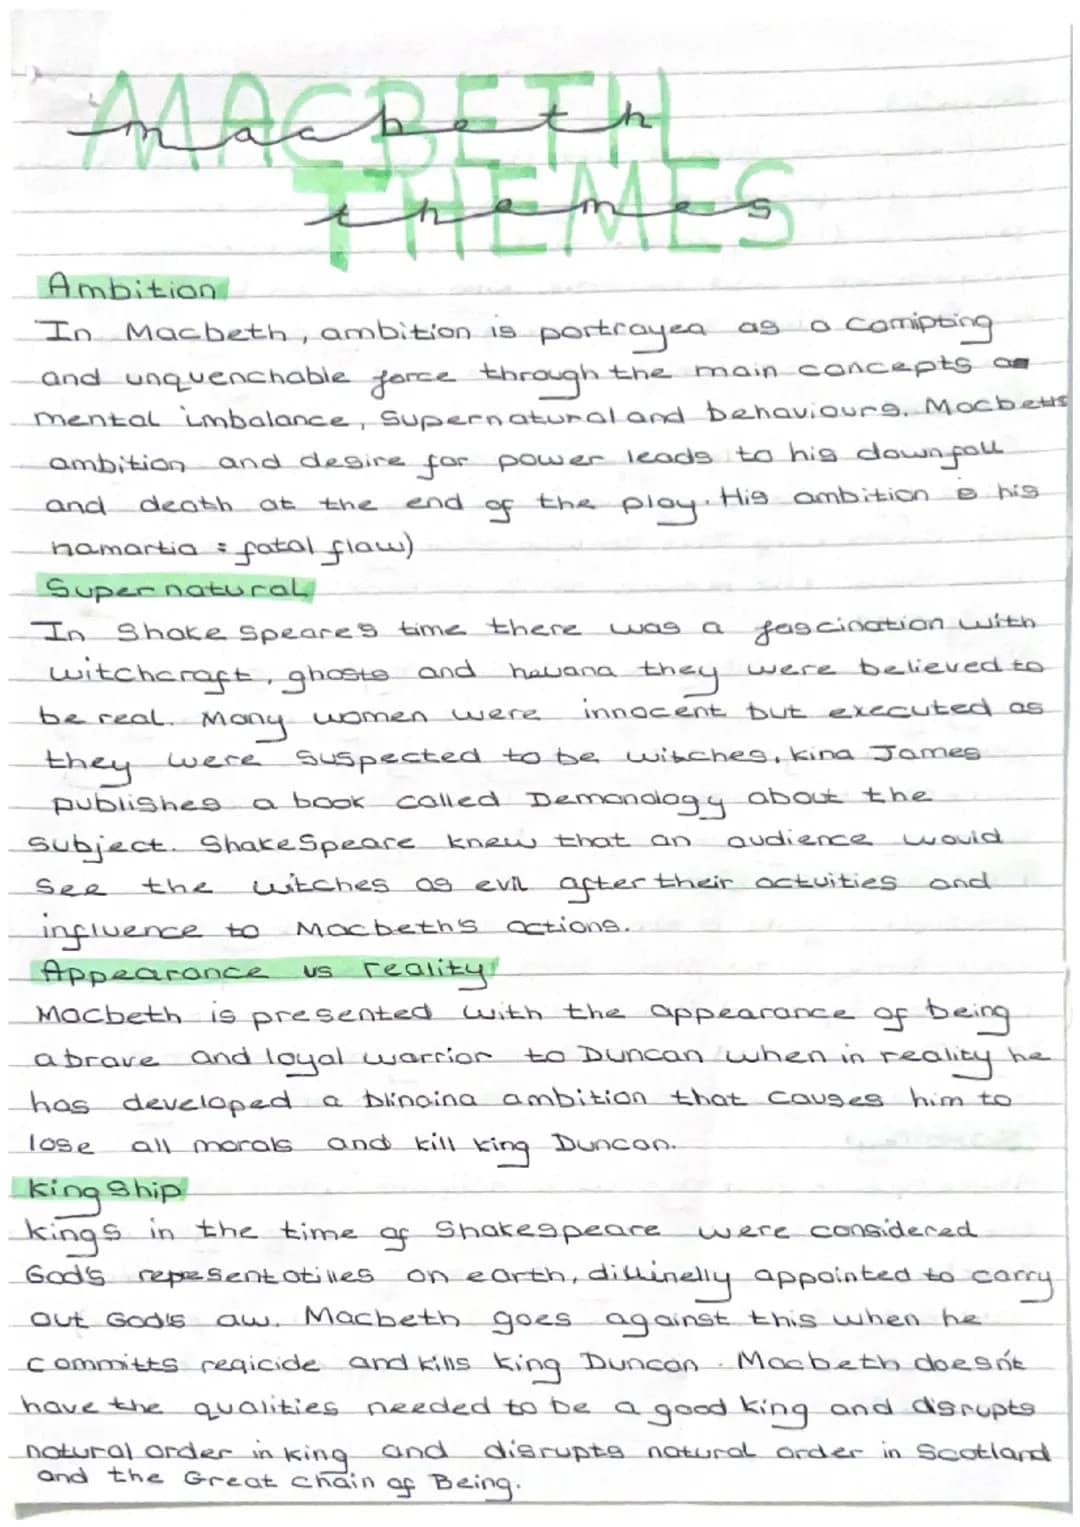 MACBETH
macbeth
THEMES
themes
Ambition
In Macbeth, ambition is portrayed as a corrupting
and unquenchable force through the main concepts as
mental imbalance, Supernatural and behaviours. Macbeth's
ambition and desire for power leads to his downfall
and death at the end of the play. His ambition is his
hamartia = fatal flaw)
Supernatural
In Shakespeare's time there was a fascination with
witchcraft, ghosts and they were believed to
be real. Many women were innocent but executed as
they were suspected to be witches, King James
publishes a book called Demonology about the
subject. Shakespeare knew that an audience would
see the witches as evil after their activities and
influence to Macbeth's actions.
Appearance vs reality
Macbeth is presented with the appearance of being
a brave and loyal warrior to Duncan when in reality he
has developed a blinding ambition that causes him to
lose all morals and kill king Duncan.
KingShip
kings in the time of Shakespeare were considered
God's representatives on earth, appointed to carry
out God's aw. Macbeth goes against this when he
committs regicide and kills king Duncan. Macbeth doesn't
have the qualities needed to be a good king and disrupts
natural order in king and disrupts natural order in Scotland
and the Great chain of Being.